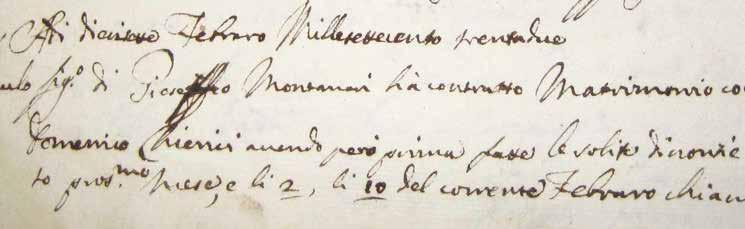 Adi diciisete Febraro Millesettecento trentadue
figo. di Gioseffo Montanari hà contratto Matrimonio co
Domenico Chierici avendo però prima fatte le solite dinonzie
to prosmo. Mese, e li 2, li 10 del corrente Febraro chiam